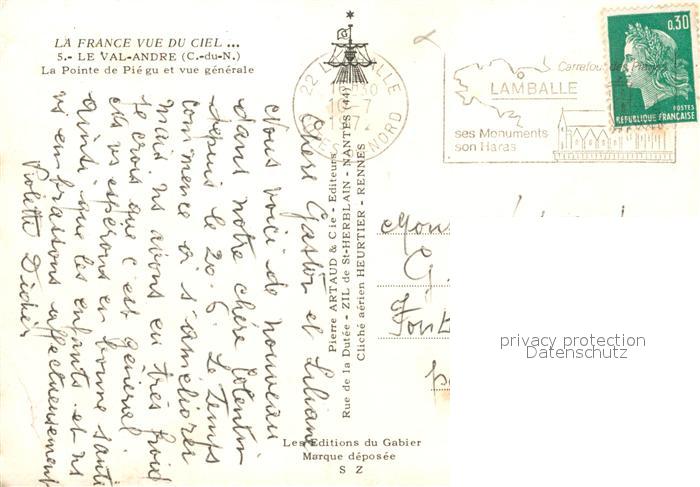 LA FRANCE VUE DU CIEL ...
5.- LE VAL-ANDRE (C.-du-N.)
La Pointe de Piégu et vue générale
22 LAMBALLE
10-7
1972
NORD
Carrefour des
LAMBALLE
ses Monuments
son Haras
0,30
POSTES
REPUBLIQUE FRANÇAISE
Chers Gaston et Liliane
Nous voici de nouveau
dans notre chère
depuis le 20.6. Le Temps
commence à s'améliorer
mais ns avons eu très froid
je crois que c'est général
Cts ns espérons en bonne santé
ainsi que les enfants et ns
vs embrassons affectueusement
Violette Didier
Pierre ARTAUD & Cie - Editeurs
Rue de la Dutée - ZIL de St-HERBLAIN - NANTES (44)
Cliché aérien HEURTIER - RENNES
Les Editions du Gabier
Marque déposée
S Z
Mons
G.
Font
privacy protection
Datenschutz